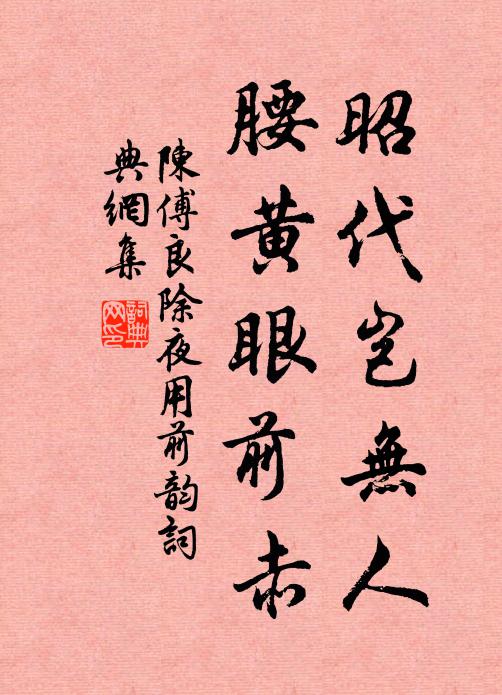 昭代岂無人
腰黄眼前赤
陳傅良除夜用前韵詞
典網集
詞典
网印